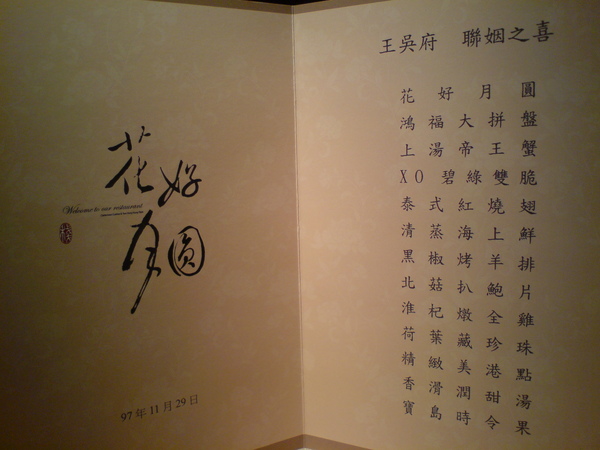 花好
Welcome to our restaurant
月圓
97年11月29日
王吳府 聯姻之喜
花好月圓
鴻福大拼盤
上湯帝王蟹
XO碧綠雙脆
泰式紅燒翅
清蒸海上鮮
黑椒烤羊排
北菇扒鮑片
淮杞燉全雞
荷葉藏珍珠
精緻美港點
香滑潤甜湯
寶島時令果